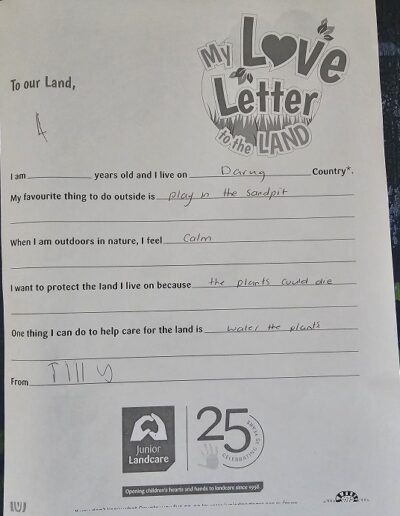 My Love
Letter
to the LAND
To our Land,
4
I am ___ years old and I live on Darug Country*.
My favourite thing to do outside is play in the sandpit
When I am outdoors in nature, I feel calm
I want to protect the land I live on because the plants could die
One thing I can do to help care for the land is water the plants
From Tilly
Junior
Landcare
25
CELEBRATING YEARS OF
Opening children's hearts and hands to landcare since 1998.